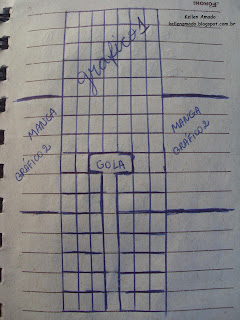 Kellen Amado
kellenamado.blogspot.com.br
gráfico 1
MANGA
GRÁFICO 2
MANGA
GRÁFICO 2
GOLA